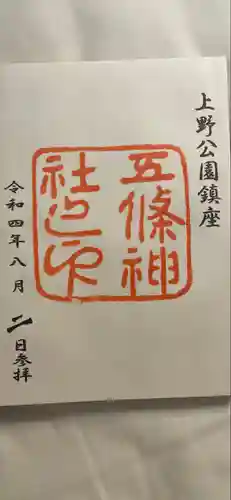 上野公園鎮座
五條神
社之印
令和四年八月二日参拝